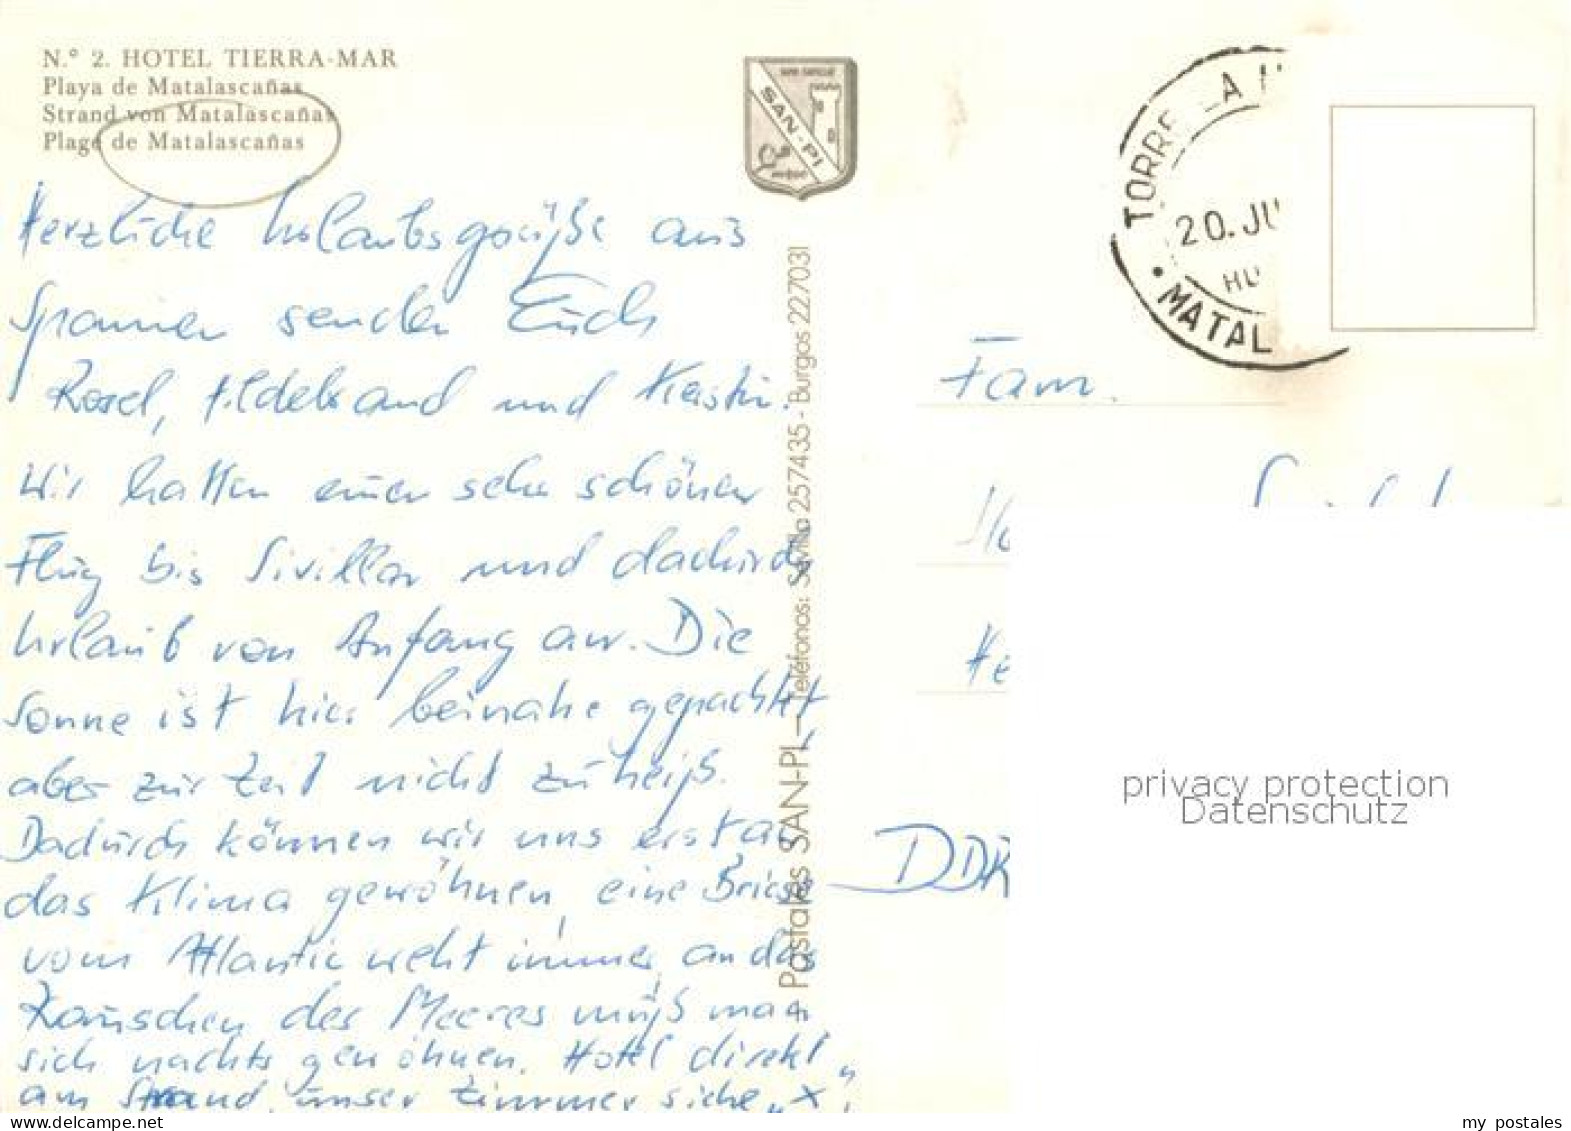 N.° 2. HOTEL TIERRA-MAR
Playa de Matalascañas
Strand von Matalascañas
Plage de Matalascañas
SAN-PI
TORRE LA H
20. JU
HU
MATAL
Herzliche Urlaubsgrüße aus
Spanien senden Euch
Rosel, Hildebrand und Kerstin.
Wir hatten einen sehr schönen
Flug bis Sivilla und dadurch
Urlaub von Anfang an. Die
Sonne ist hier beinahe gepachtet,
aber zur Zeit nicht zu heiß.
Dadurch können wir uns erst an
das Klima gewöhnen, eine Briese
vom Atlantic weht immer, an das
Rauschen des Meeres muß man
sich nachts gewöhnen. Hotel direkt
am Strand, unser Zimmer siehe „x“
Postales SAN-PI.—Teléfonos: Sevilla 257435 - Burgos 227031
Fam.
DDR
privacy protection
Datenschutz
my postales